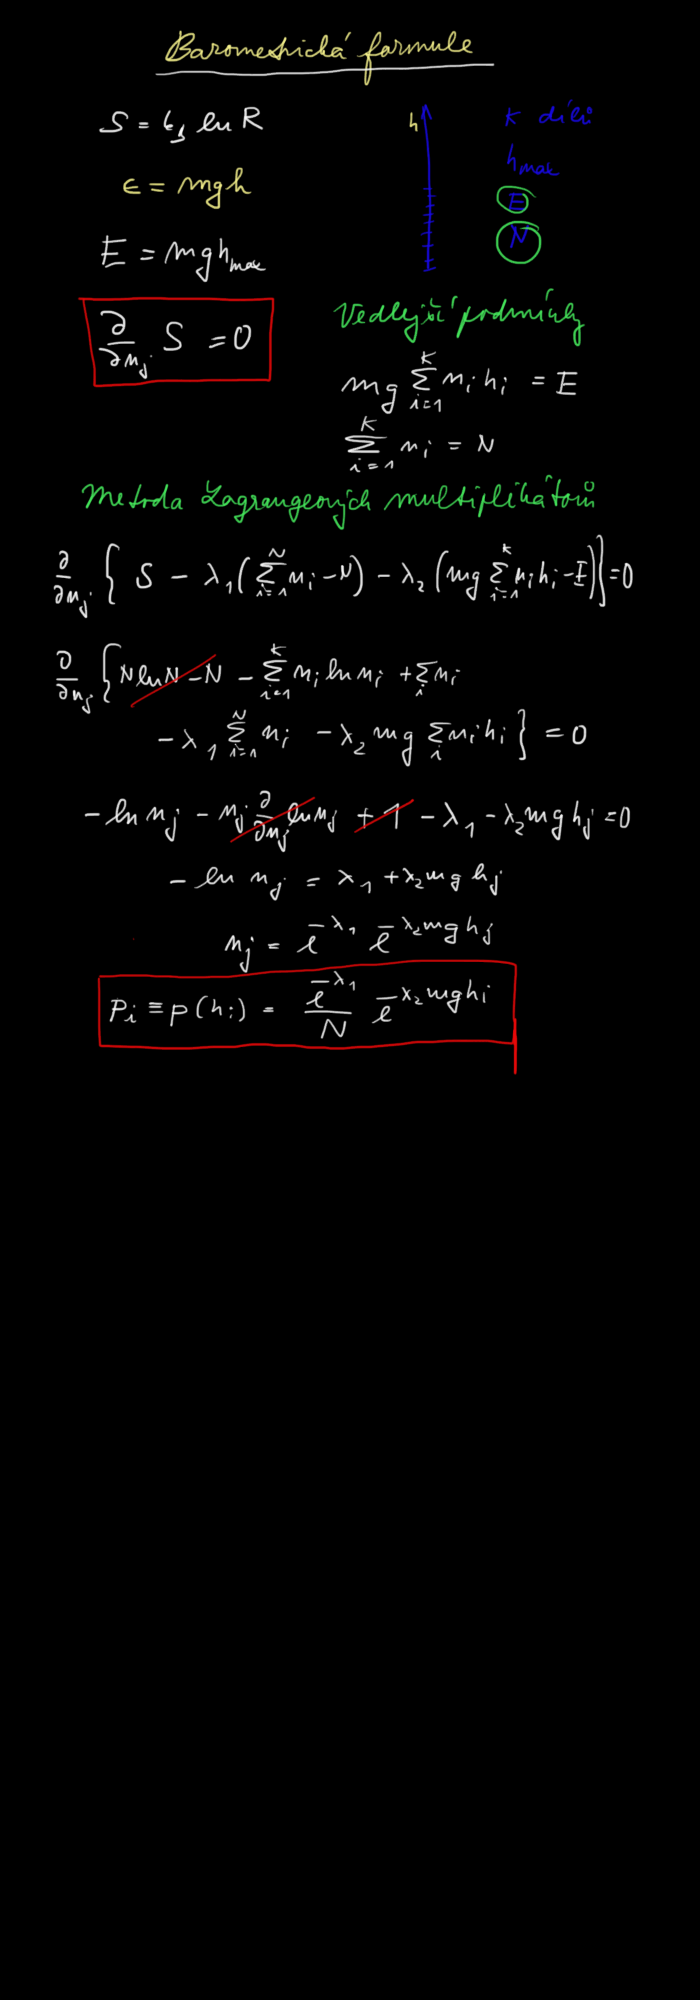 Barometrická formule
S = k_B ln R
h
K dílů
ϵ = mgh
h_max
E
E = mgh_max
N
∂/∂n_j S = 0
Vedlejší podmínky
mg ∑_{i=1}^{K} n_i h_i = E
∑_{i=1}^{K} n_i = N
Metoda Lagrangeových multiplikátorů
∂/∂n_j { S - λ_1 (∑_{i=1}^{N} n_i - N) - λ_2 (mg ∑_{i=1}^{K} n_i h_i - E) } = 0
∂/∂n_j { N ln N - N - ∑_{i=1}^{K} n_i ln n_i + ∑_i n_i
- λ_1 ∑_{i=1}^{N} n_i - λ_2 mg ∑_i n_i h_i } = 0
- ln n_j - n_j ∂/∂n_j ln n_j + 1 - λ_1 - λ_2 mg h_j = 0
- ln n_j = λ_1 + λ_2 mg h_j
n_j = e^{-λ_1} e^{-λ_2 mg h_j}
P_i ≡ p(h_i) = e^{-λ_1}/N e^{-λ_2 mg h_i}